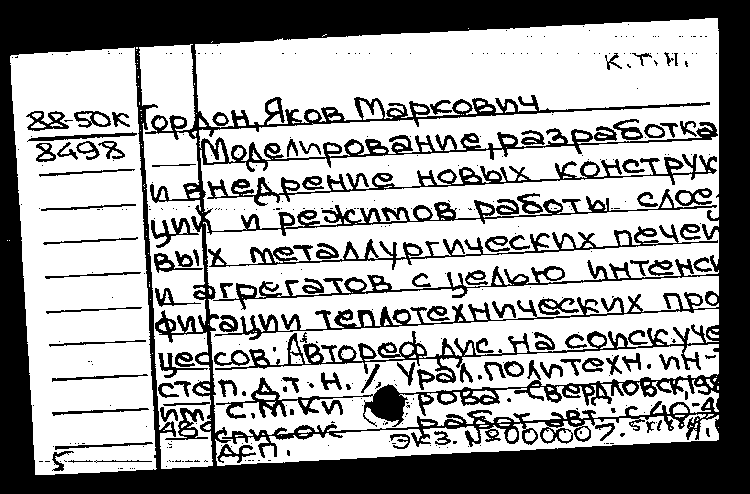 к.т.н.
88-50К Гордон, Яков Маркович.
8498 Моделирование, разработка
и внедрение новых конструк
ций и режимов работы слое-
вых металлургических печей
и агрегатов с целью интенси
фикации теплотехнических про
цессов: Автореф. дис. на соиск. уче
степ. д.т.н. / Урал. политехн. ин-т
им. С.М. Ки рова. - Свердловск, 198
48с список работ авт.: с. 40-4
дсп. Экз. № 000007.
5